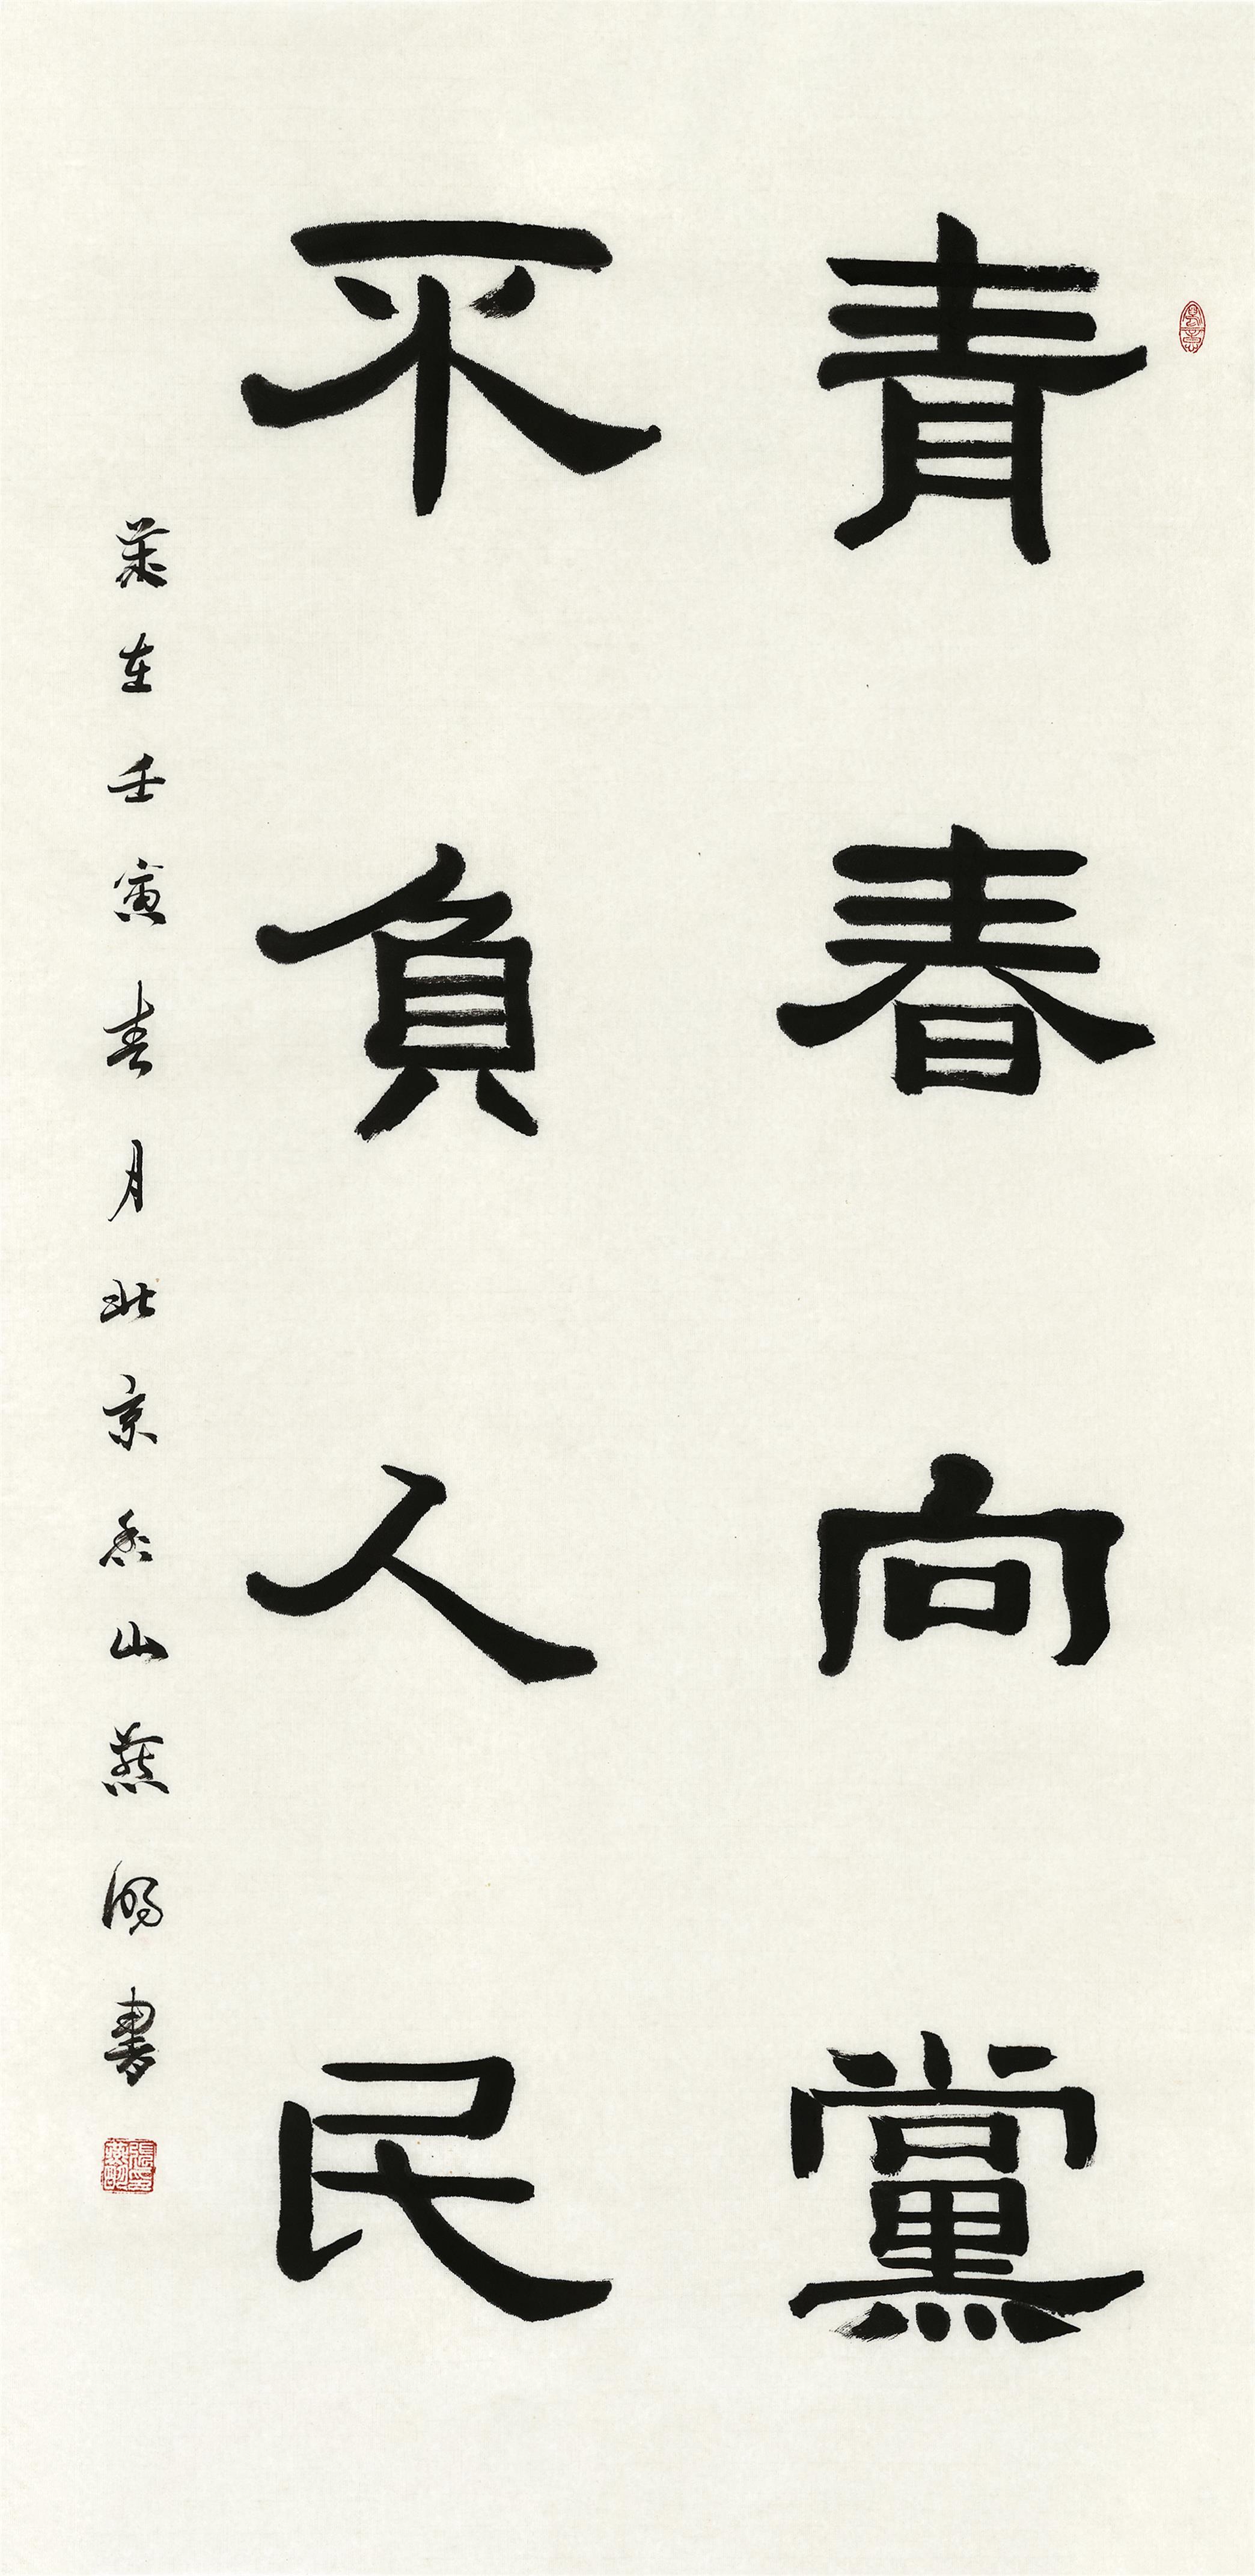 青春向黨
不負人民
歲在壬寅春月北京香山燕書